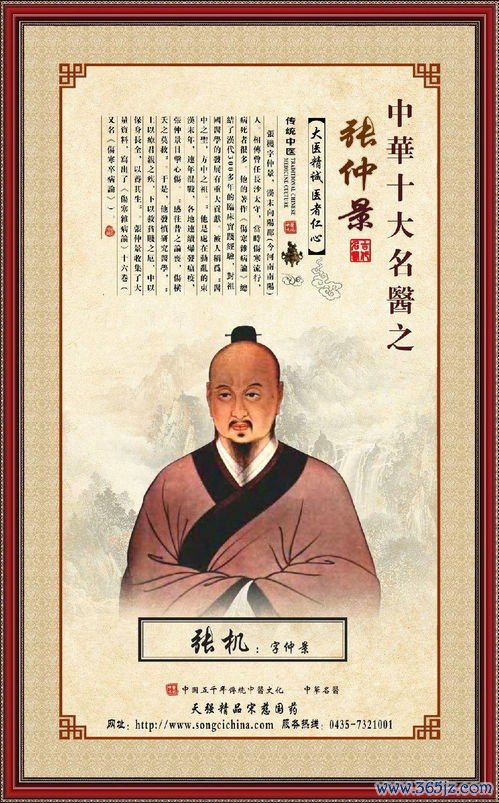 中華十大名醫之
张仲景
【大医精诚 医者仁心】
传统中医 TRADITIONAL CHINESE MEDICINE CULTURE
張機字仲景，漢末向陽郡(今河南南陽)
人，相傳曾任長沙太守，當時傷寒流行，
病死者很多，他的著作《傷寒雜病論》總
結了漢代300多年的臨床實踐經驗，對祖
國醫學的發展有重大貢獻，被人稱爲"醫
中之聖，方中之祖。"他是處在動亂的東
漢末年，連年混戰，各地連續爆發瘟疫，
張仲景目擊心傷。"感往昔之淪喪，傷橫
夭之莫救。"于是，他發憤研究醫學，"
上以療君親之疾，下以救貧賤之厄，中以
保身長全，以養其生。"張仲景收集了大
量資料，寫出了《傷寒雜病論》十六卷(
又名《傷寒卒病論》)。
张机：字仲景
中国五千年传统中医文化 中華名醫
天强精品宋慈国药
网址：http://www.songcichina.com 服务热线：0435-7321001
www.365jz.com